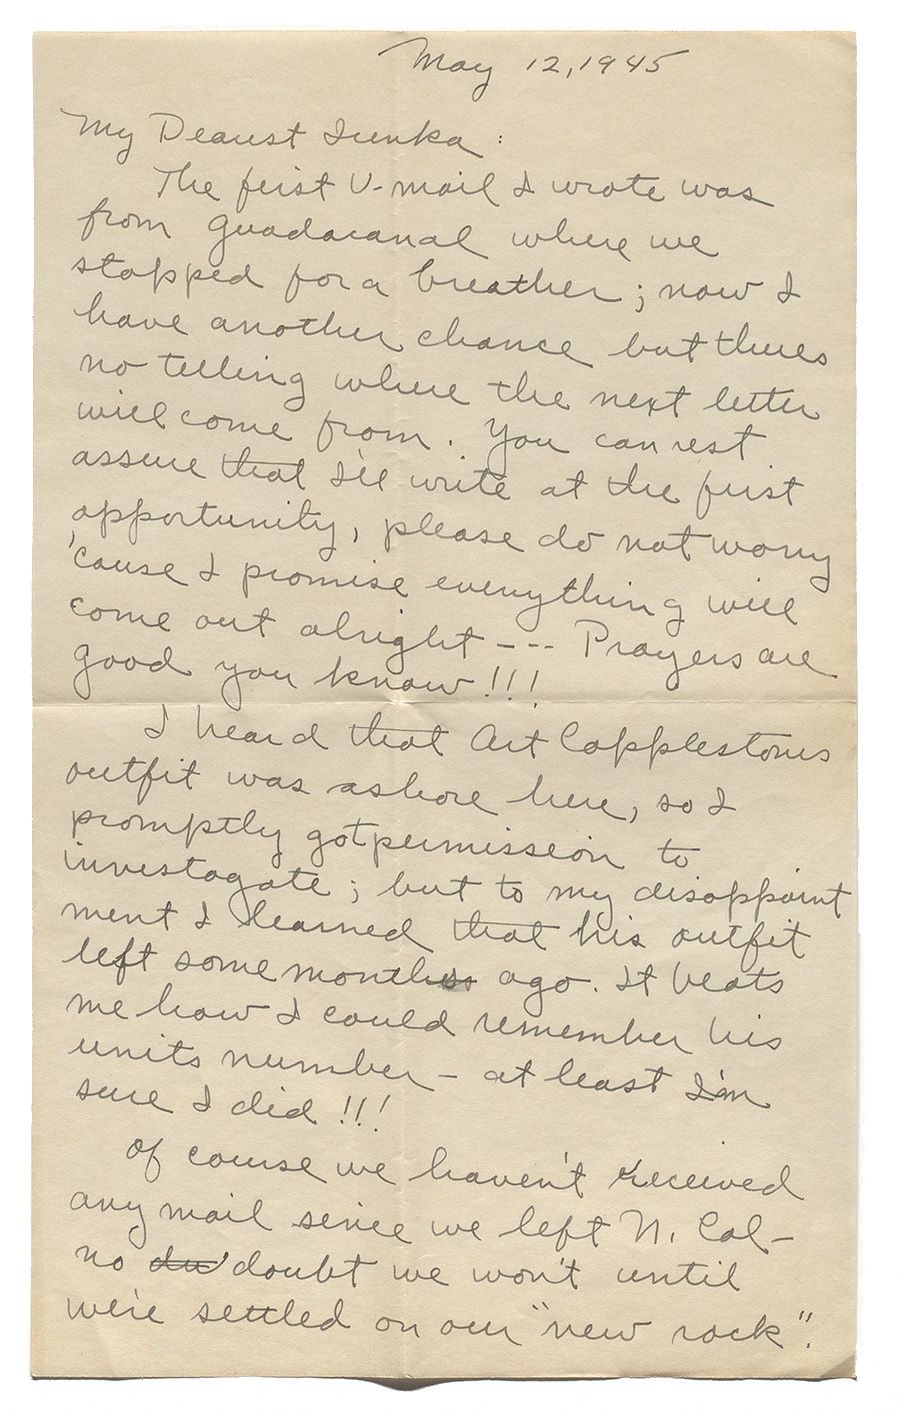 May 12, 1945
My Dearest Iunka:
The first V-mail I wrote was
from Guadacanal where we
stopped for a breather; now I
have another chance but theres
no telling where the next letter
will come from. You can rest
assure that I'll write at the first
opportunity, please do not worry
'cause I promise everything will
come out alright --- Prayers are
good you know!!!
I heard that Art Copplestones
outfit was ashore here, so I
promptly got permission to
investagate; but to my disappoint
ment I learned that his outfit
left some months ago. It beats
me how I could remember his
units number - at least I'm
sure I did!!!
Of course we haven't received
any mail since we left N. Cal-
no du' doubt we won't until
we're settled on our "new rock".